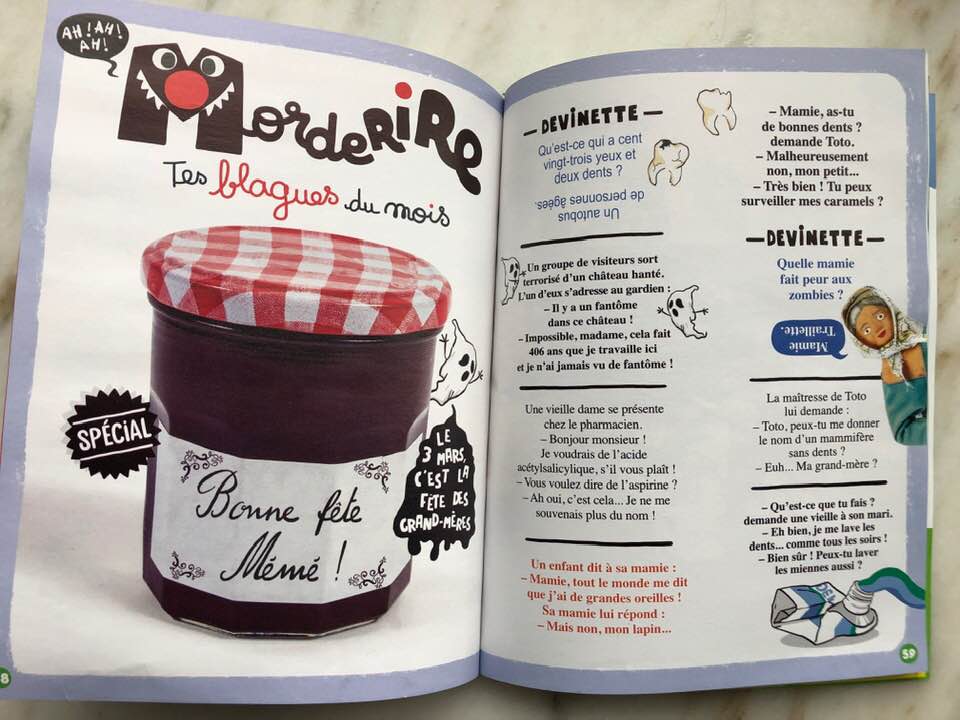 AH! AH!
AH!
MORDERIRE
Tes blagues du mois
SPÉCIAL
Bonne fête
Mémé !
LE
3 MARS,
C'EST LA
FÊTE DES
GRAND-MÈRES
8
— DEVINETTE —
Qu'est-ce qui a cent
vingt-trois yeux et
deux dents ?
Un autobus
de personnes âgées.
Un groupe de visiteurs sort
terrorisé d'un château hanté.
L'un d'eux s'adresse au gardien :
– Il y a un fantôme
dans ce château !
– Impossible, madame, cela fait
406 ans que je travaille ici
et je n'ai jamais vu de fantôme !
Une vieille dame se présente
chez le pharmacien.
– Bonjour monsieur !
Je voudrais de l'acide
acétylsalicylique, s'il vous plaît !
– Vous voulez dire de l'aspirine ?
– Ah oui, c'est cela... Je ne me
souvenais plus du nom !
Un enfant dit à sa mamie :
– Mamie, tout le monde me dit
que j'ai de grandes oreilles !
Sa mamie lui répond :
– Mais non, mon lapin...
– Mamie, as-tu
de bonnes dents ?
demande Toto.
– Malheureusement
non, mon petit...
– Très bien ! Tu peux
surveiller mes caramels ?
— DEVINETTE —
Quelle mamie
fait peur aux
zombies ?
Mamie
Traillette.
La maîtresse de Toto
lui demande :
– Toto, peux-tu me donner
le nom d'un mammifère
sans dents ?
– Euh... Ma grand-mère ?
– Qu'est-ce que tu fais ?
demande une vieille à son mari.
– Eh bien, je me lave les
dents... comme tous les soirs !
– Bien sûr ! Peux-tu laver
les miennes aussi ?
59